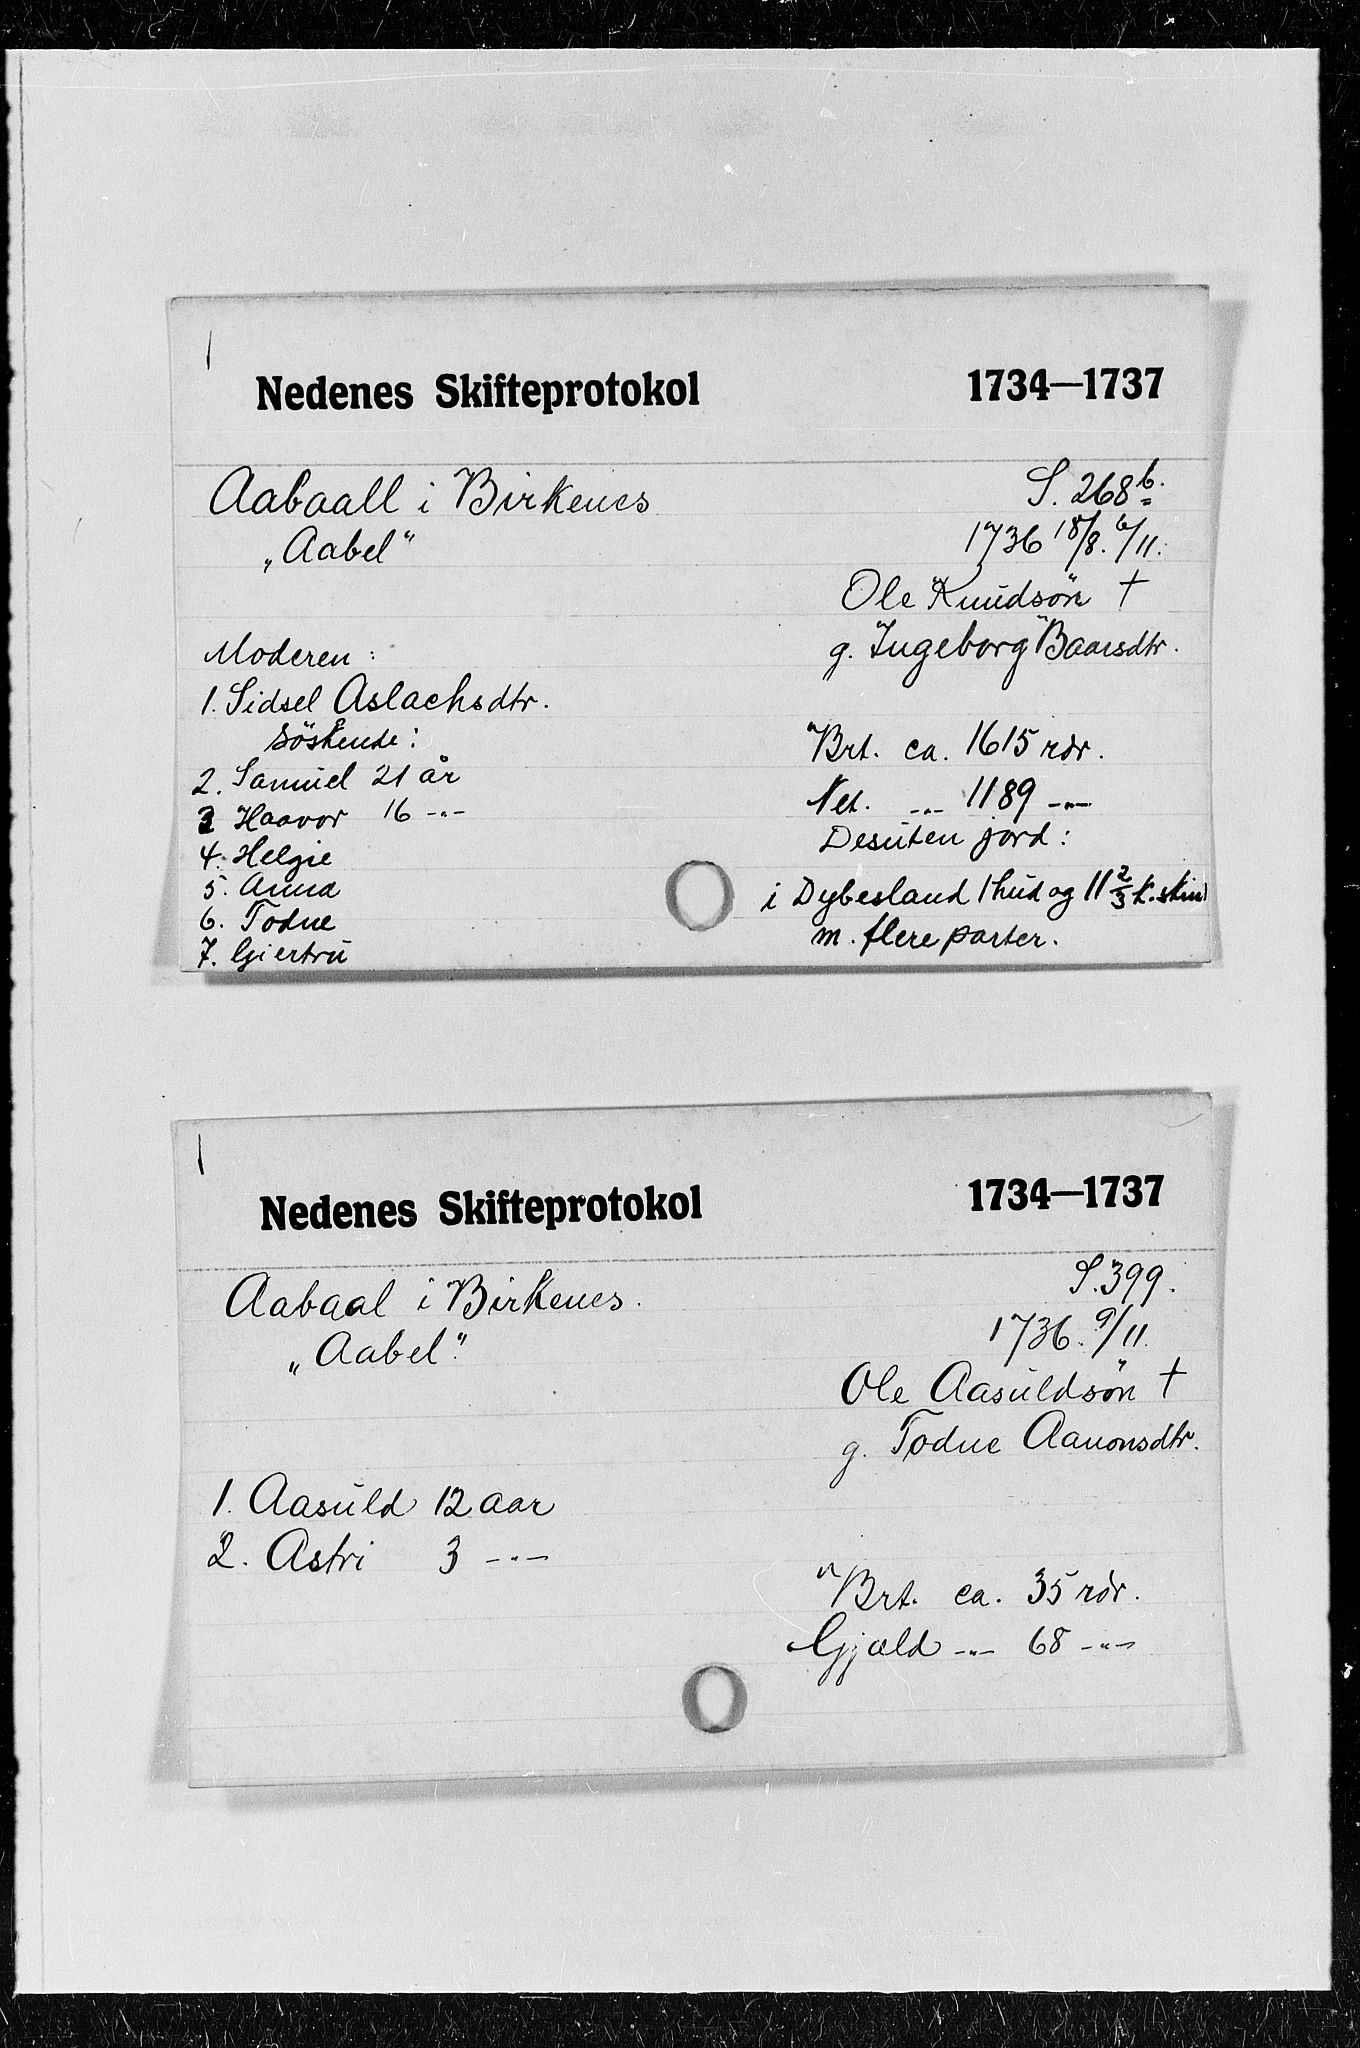 1
Nedenes Skifteprotokol 1734—1737
Aabaall i Birkenes S. 268 b.
„Aabel“ 1736 18/8. 6/11.
Ole Knudsön †
Moderen: g. Ingeborg Baarsdtr.
1. Sidsel Aslachsdtr.
Söskende: Brt. ca. 1615 rdr.
2. Samuel 21 år
3 Haavor 16 -"- Net. -"- 1189 -"-
Desuten jord:
4. Helgie
5. Anna i Dybesland 1 hud og 11 2/3 k.skind
6. Todne m. flere parter.
7. Giertru
1
Nedenes Skifteprotokol 1734—1737
Aabaal i Birkenes. S. 399.
„Aabel“. 1736. 9/11.
Ole Aasuldsön †
g. Todne Aanonsdtr.
1. Aasuld 12 aar
2. Astri 3 -"-
Brt. ca. 35 rdr.
Gjæld -"- 68 -"-